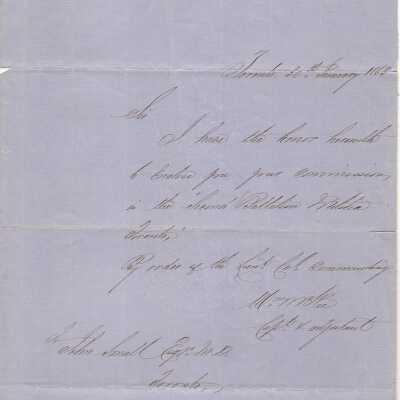 Toronto 20th January 1862
Sir
I have the honor herewith
to Enclose you your Commission,
in the "Second Battalion Militia
Toronto,"
By order of the Lieut Col Commanding
Capt & Adjutant
To
John Small Esqr M.D.
Toronto,